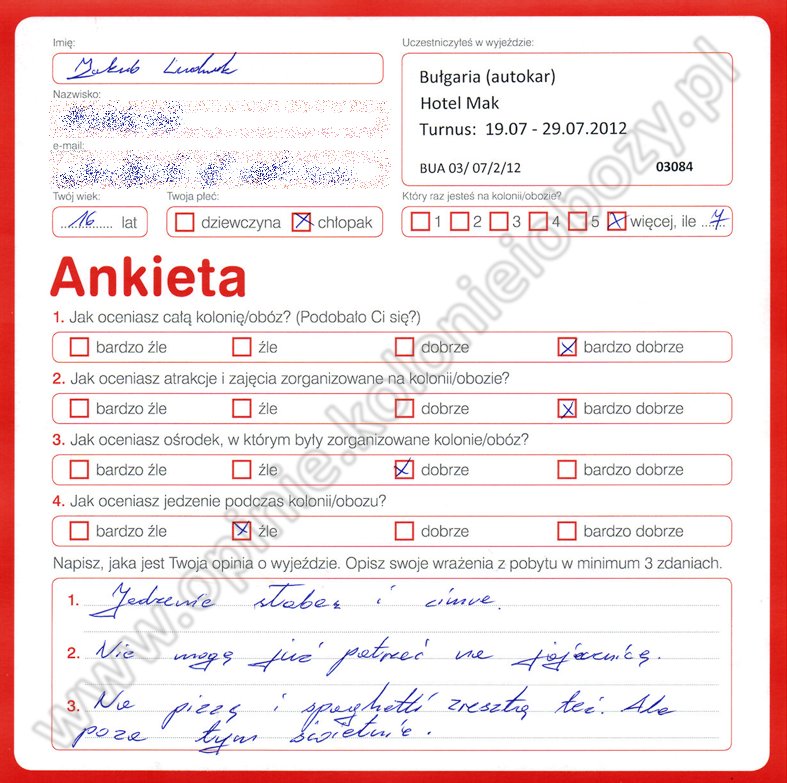 Imię:
Uczestniczyłeś w wyjeździe:
Jakub Ludwik
Bułgaria (autokar)
Hotel Mak
Turnus: 19.07 - 29.07.2012
BUA 03/ 07/2/12 03084
Nazwisko:
e-mail:
Twój wiek:
16 lat
Twoja płeć:
dziewczyna chłopak
Który raz jesteś na kolonii/obozie?
1 2 3 4 5 więcej, ile 7
Ankieta
1. Jak oceniasz całą kolonię/obóz? (Podobało Ci się?)
bardzo źle źle dobrze bardzo dobrze
2. Jak oceniasz atrakcje i zajęcia zorganizowane na kolonii/obozie?
bardzo źle źle dobrze bardzo dobrze
3. Jak oceniasz ośrodek, w którym były zorganizowane kolonie/obóz?
bardzo źle źle dobrze bardzo dobrze
4. Jak oceniasz jedzenie podczas kolonii/obozu?
bardzo źle źle dobrze bardzo dobrze
Napisz, jaka jest Twoja opinia o wyjeździe. Opisz swoje wrażenia z pobytu w minimum 3 zdaniach.
1. Jedzenie i zimne.
2. Nie mogę już patrzeć na jajecznicą.
3. Na pizzą i spaghetti zresztą też. Ale
poza tym świetnie.
www.opinie.kolonieiobozy.pl